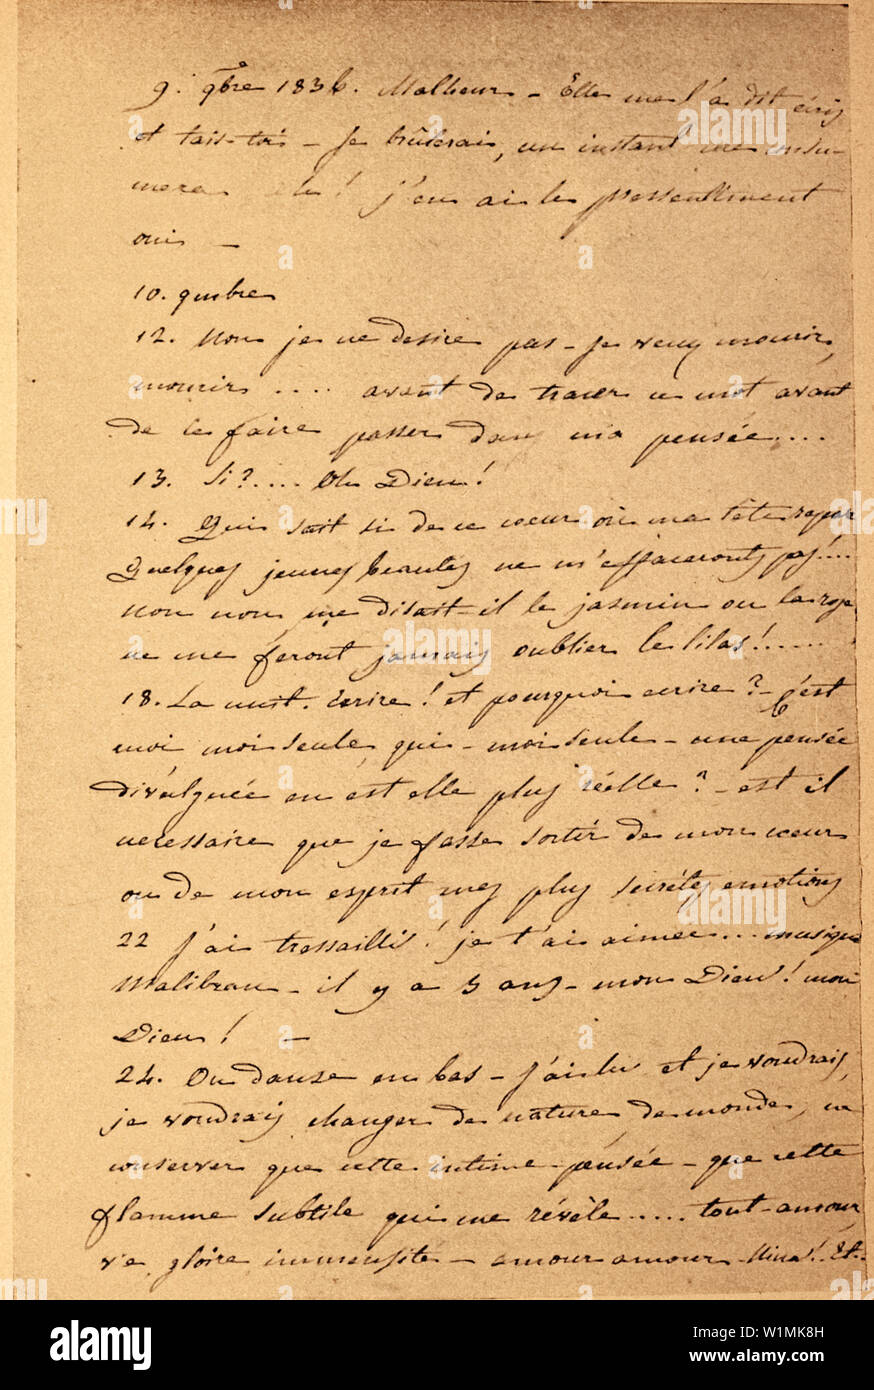 9. 9bre 1836. Malheur - Elle me l'a dit écris
et tais-toi - Je brûlerais, un instant me consu-
mera ! j'en ai le pressentiment
oui -
10. 9mbre
12. Non je ne desire pas - Je veux mourir,
mourir .... avant de tracer ce mot avant
de le faire passer dans ma pensée....
13. Si?.... Oh Dieu!
14. Qui sait si de ce coeur où ma tête repose
Quelques jeunes beautés ne m'effaceront pas!...
Non non me disait-il le jasmin ou la rose
ne me feront jamais oublier le lilas!.....
18. La nuit. Ecrire! et pourquoi ecrire? - C'est
moi moi seule qui - moi seule - une pensée
divulguée en est elle plus réelle? - est il
necessaire que je fasse sortir de mon coeur
ou de mon esprit mes plus secrètes emotions
22 J'ai tressailli! je t'ai aimer... musique
Malibran - il y a 3 ans - mon Dieu! mon
Dieu! -
24. On danse en bas - J'ai lu et je voudrais,
je voudrais changer de nature, de monde, ne
conserver que cette intime pensée - que cette
flamme subtile qui me révèle..... tout-amour
vie gloire immensité - amour amour - Nina! Et-
alamy
Image ID: W1MK8H
www.alamy.com